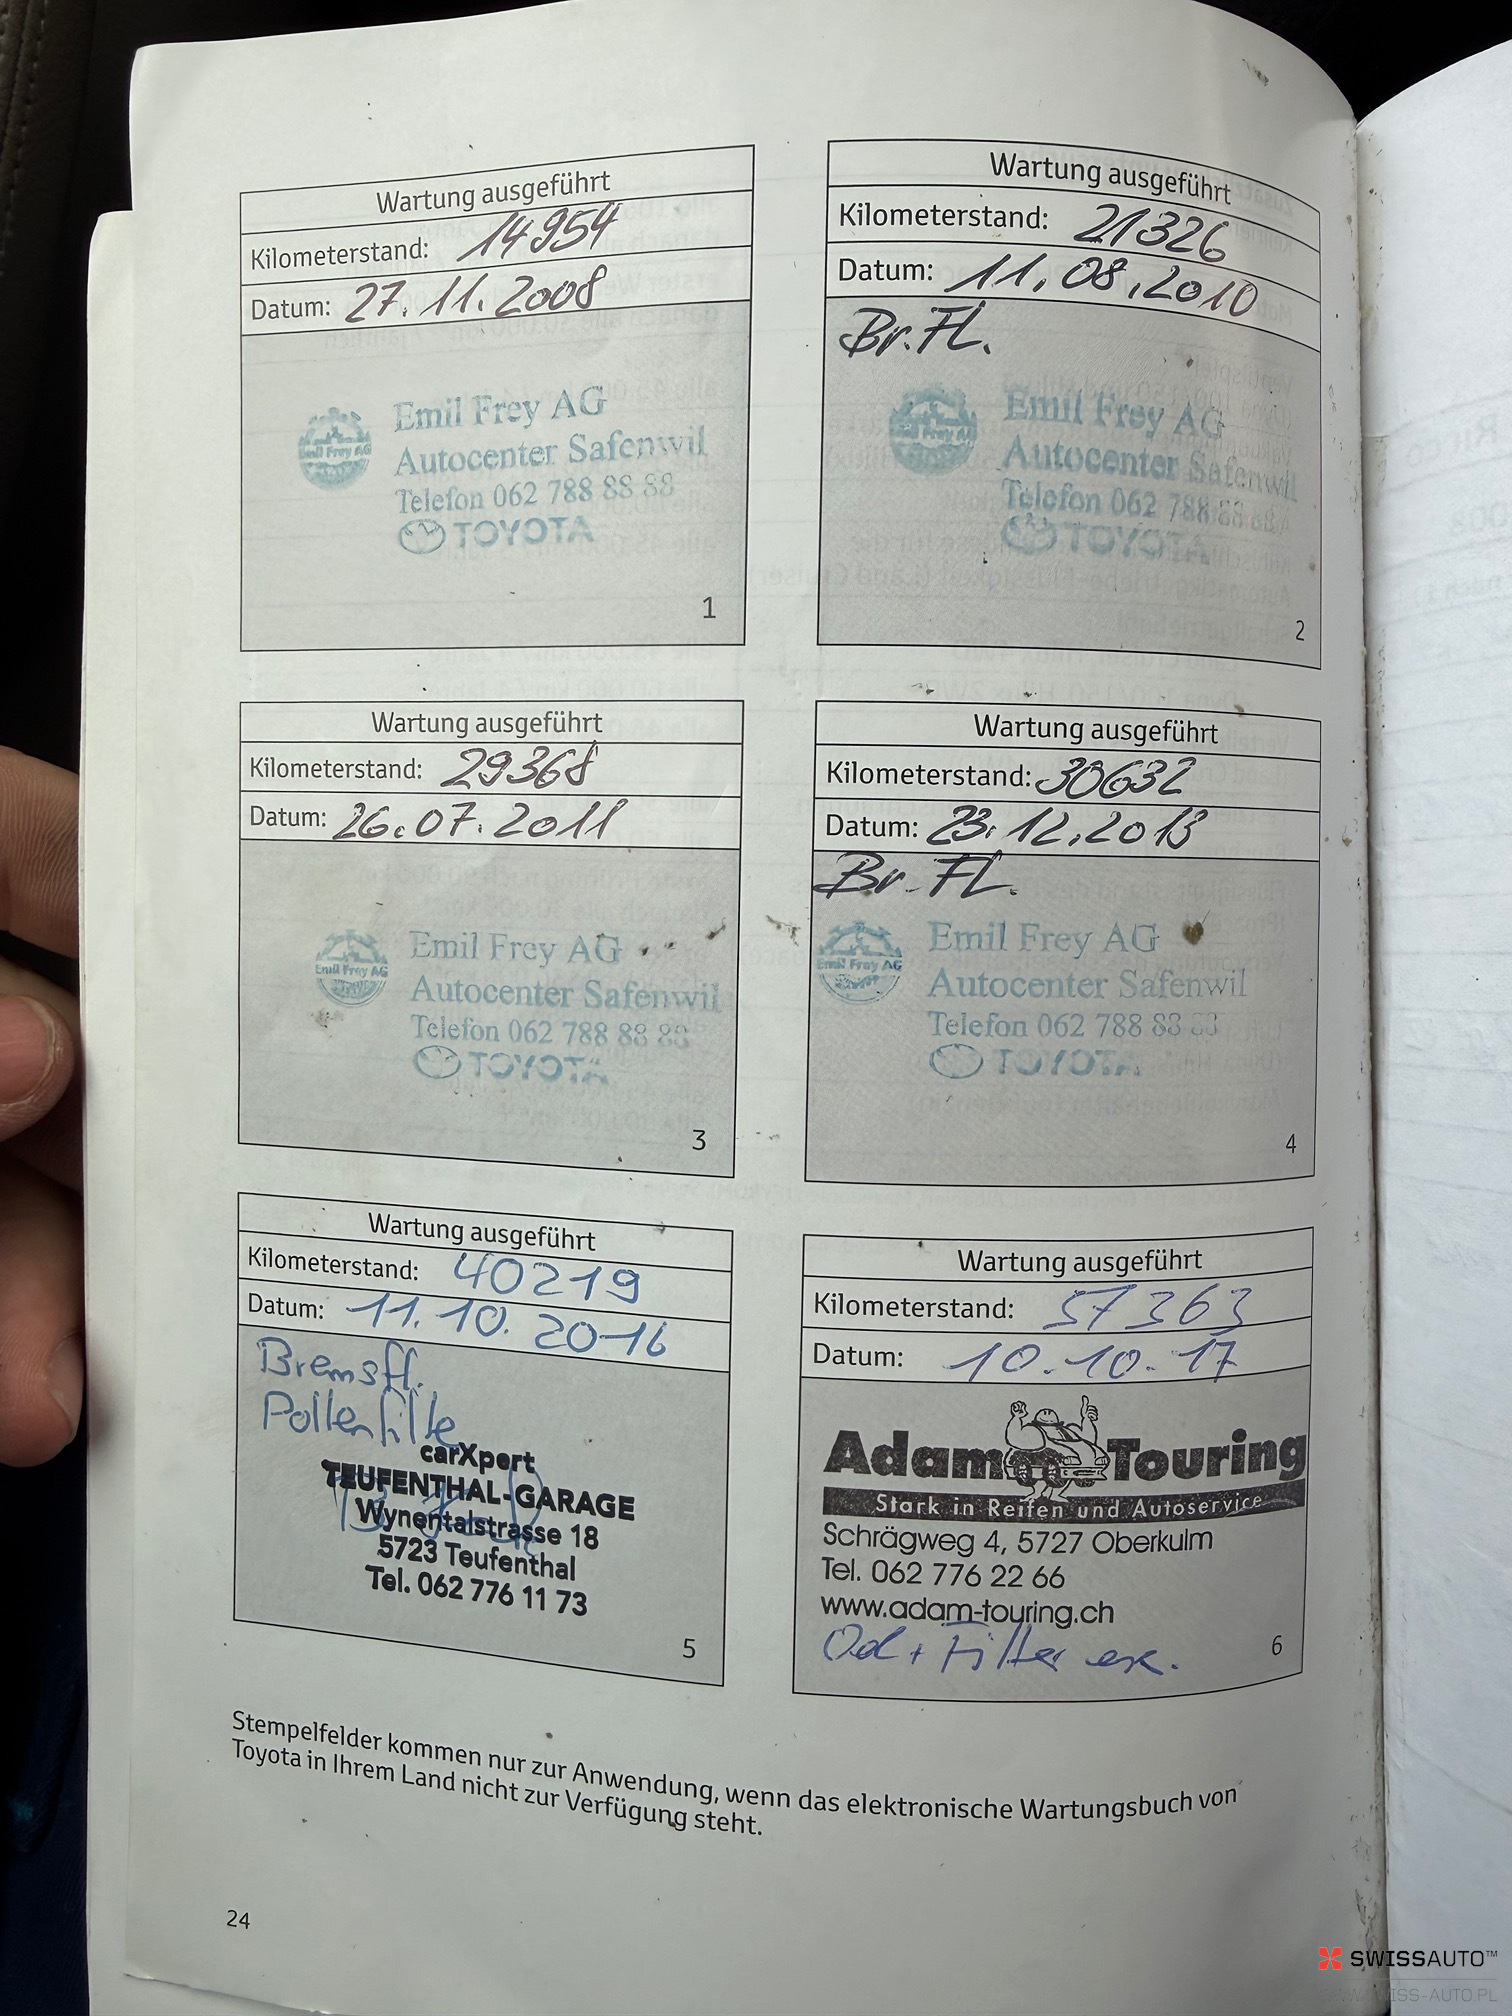 Wartung ausgeführt
Kilometerstand: 14954
Datum: 27.11.2008
Emil Frey AG
Emil Frey AG
Autocenter Safenwil
Telefon 062 788 88 88
TOYOTA
1
Wartung ausgeführt
Kilometerstand: 21326
Datum: 11.08.2010
Br. Fl.
Emil Frey AG
Emil Frey AG
Autocenter Safenwil
Telefon 062 788 88 88
TOYOTA
2
Wartung ausgeführt
Kilometerstand: 29368
Datum: 26.07.2011
Emil Frey AG
Emil Frey AG
Autocenter Safenwil
Telefon 062 788 88 88
TOYOTA
3
Wartung ausgeführt
Kilometerstand: 30632
Datum: 23.12.2013
Br. FL.
Emil Frey AG
Emil Frey AG
Autocenter Safenwil
Telefon 062 788 88 88
TOYOTA
4
Wartung ausgeführt
Kilometerstand: 40219
Datum: 11.10.2016
Bremsfl.
Pollenfilte
carXpert
TEUFENTHAL-GARAGE
Wynentalstrasse 18
5723 Teufenthal
Tel. 062 776 11 73
5
Wartung ausgeführt
Kilometerstand: 57363
Datum: 10.10.17
Adam Touring
Stark in Reifen und Autoservice
Schrägweg 4, 5727 Oberkulm
Tel. 062 776 22 66
www.adam-touring.ch
Oel + Filter ers.
6
Stempelfelder kommen nur zur Anwendung, wenn das elektronische Wartungsbuch von
Toyota in Ihrem Land nicht zur Verfügung steht.
24
SWISSAUTO™
WWW.SWISS-AUTO.PL